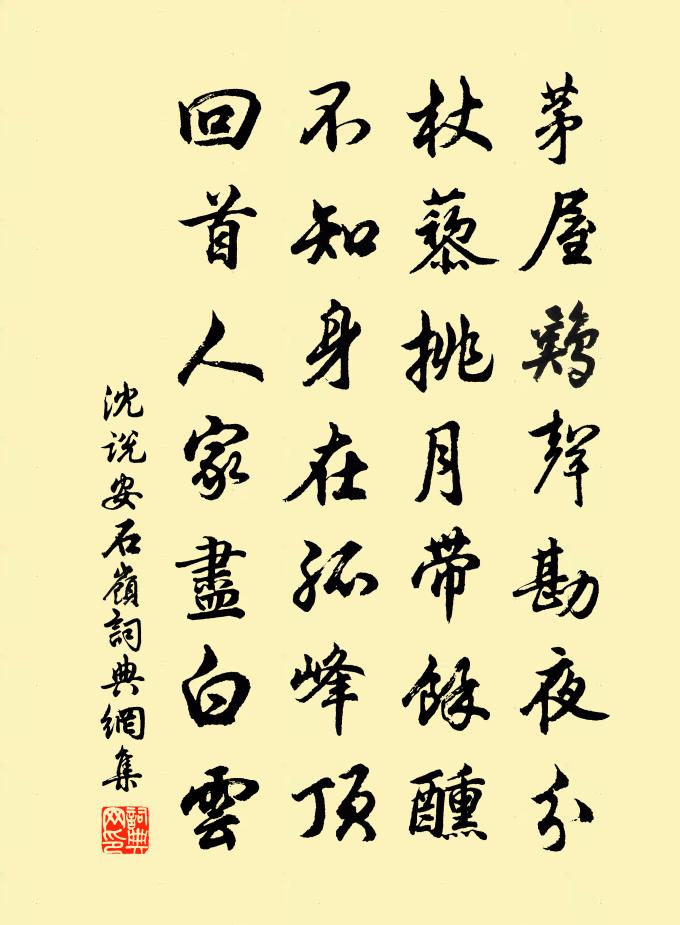 茅屋鷄聲勘夜分
杖藜挑月帶餘醺
不知身在孤峰頂
回首人家盡白雲
沈说安石嶺詞典網集
詞典网印